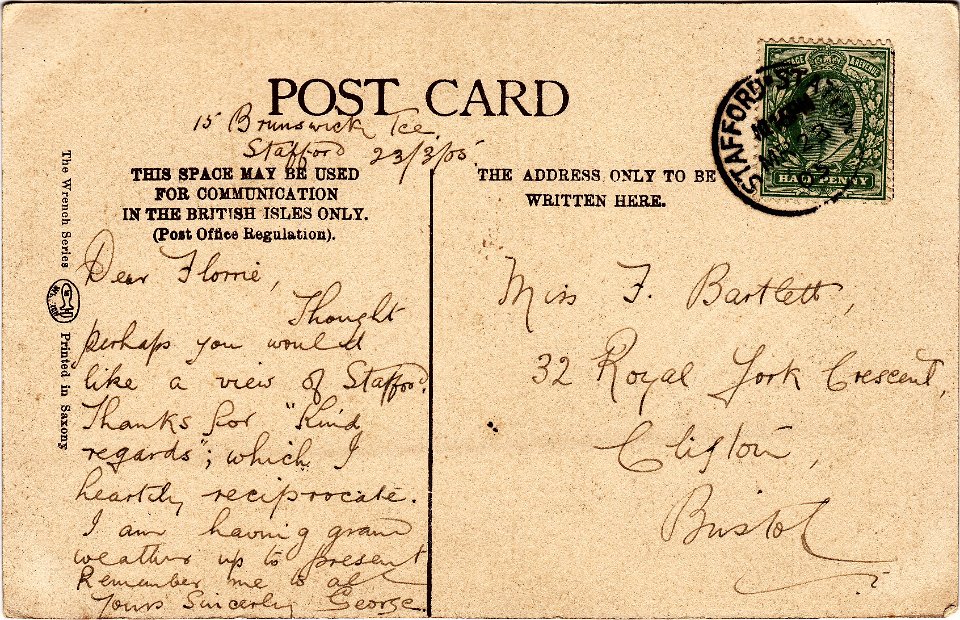 POST CARD
15 Brunswick Tce
Stafford 23/3/05
THIS SPACE MAY BE USED
FOR COMMUNICATION
IN THE BRITISH ISLES ONLY.
(Post Office Regulation).
Dear Florrie,
Thought
perhaps you would
like a view of Stafford.
Thanks for "Kind
regards"; which I
heartily reciprocate.
I am having grand
weather up to present
Remember me to all
Yours Sincerely George.
The Wrench Series
Printed in Saxony
THE ADDRESS ONLY TO BE
WRITTEN HERE.
Miss F. Bartlett,
32 Royal York Crescent,
Clifton,
Bristol
STAFFORD STATION
MR 23
05
POSTAGE & REVENUE
HALFPENNY